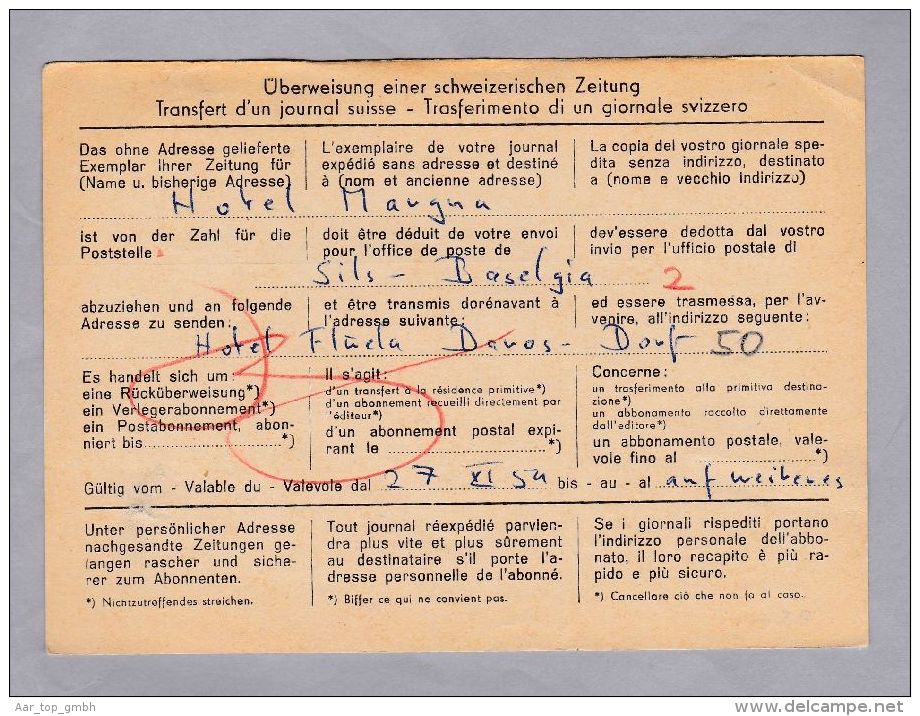 Überweisung einer schweizerischen Zeitung
Transfert d'un journal suisse - Trasferimento di un giornale svizzero
Das ohne Adresse gelieferte
Exemplar Ihrer Zeitung für
(Name u. bisherige Adresse)
L'exemplaire de votre journal
expédié sans adresse et destiné
à (nom et ancienne adresse)
La copia del vostro giornale spe-
dita senza indirizzo, destinato
a (nome e vecchio indirizzo)
Hotel Margna
ist von der Zahl für die
Poststelle
doit être déduit de votre envoi
pour l'office de poste de
dev'essere dedotta dal vostro
invio per l'ufficio postale di
Sils - Baselgia 2
abzuziehen und an folgende
Adresse zu senden:
et être transmis dorénavant à
l'adresse suivante:
ed essere trasmessa, per l'av-
venire, all'indirizzo seguente:
Hotel Flüela Davos - Dorf 50
Es handelt sich um:
eine Rücküberweisung*)
ein Verlegerabonnement*)
ein Postabonnement, abon-
niert bis *)
Il s'agit:
d'un transfert à la résidence primitive*)
d'un abonnement recueilli directement par
l'éditeur*)
d'un abonnement postal expi-
rant le *)
Concerne:
un trasferimento alla primitiva destina-
zione*)
un abbonamento raccolto direttamente
dall'editore*)
un abbonamento postale, vale-
vole fino al *)
Gültig vom - Valable du - Valevole dal 27 XI 54 bis - au - al auf weiteres
Unter persönlicher Adresse
nachgesandte Zeitungen ge-
langen rascher und siche-
rer zum Abonnenten.
*) Nichtzutreffendes streichen.
Tout journal réexpédié parvien-
dra plus vite et plus sûrement
au destinataire s'il porte l'a-
dresse personnelle de l'abonné.
*) Biffer ce qui ne convient pas.
Se i giornali rispediti portano
l'indirizzo personale dell'abbo-
nato, il loro recapito è più ra-
pido e più sicuro.
*) Cancellare ciò che non fa al caso.
Aar_top_gmbh
www.delcampe.net